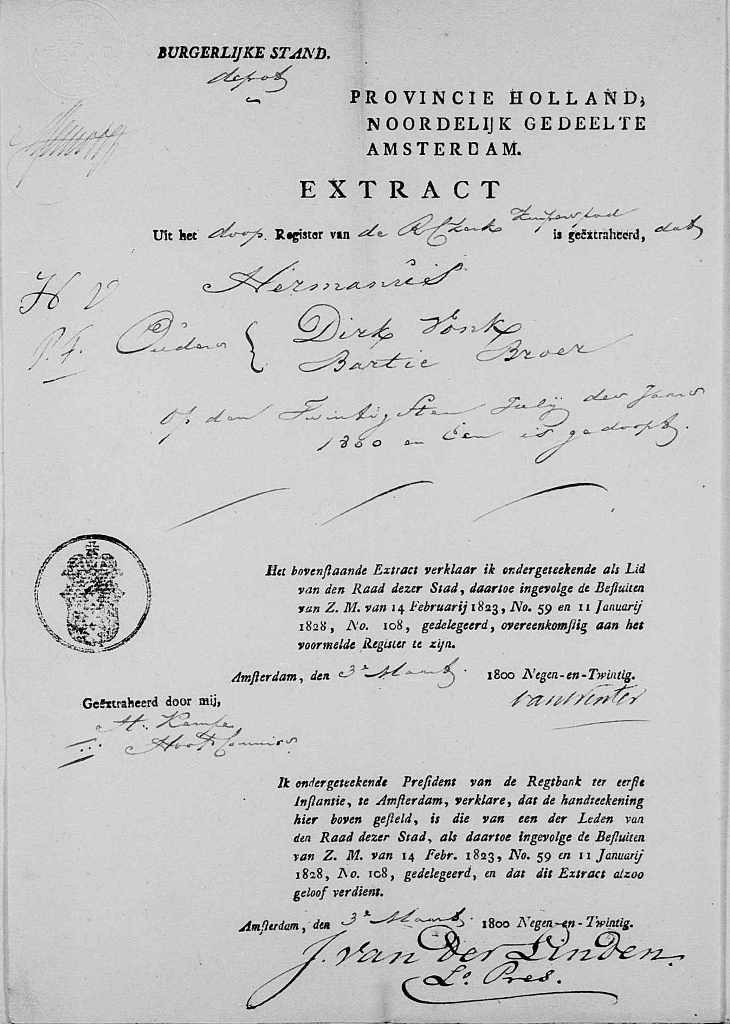 BURGERLIJKE STAND.
depot
PROVINCIE HOLLAND,
NOORDELIJK GEDEELTE
AMSTERDAM.
EXTRACT
Uit het doop Register van de R C Kerk is geëxtraheerd, dat
H V Hermanús
P. F. Oúders { Dirk Vonk
Bartie Broer
Op den Twintigsten Julij des Jaars
1800 en Een is gedoopt.
Het bovenstaande Extract verklaar ik ondergeteekende als Lid
van den Raad dezer Stad, daartoe ingevolge de Besluiten
van Z. M. van 14 Februarij 1823, No. 59 en 11 Januarij
1828, No. 108, gedelegeerd, overeenkomstig aan het
voormelde Register te zijn.
Amsterdam, den 3e Maart 1800 Negen-en-Twintig.
van Winter
Geëxtraheerd door mij,
Hoofd Commies
Ik ondergeteekende President van de Regtbank ter eerste
Instantie, te Amsterdam, verklare, dat de handteekening
hier boven gesteld, is die van een der Leden van
den Raad dezer Stad, als daartoe ingevolge de Besluiten
van Z. M. van 14 Febr. 1823, No. 59 en 11 Januarij
1828, No. 108, gedelegeerd, en dat dit Extract alzoo
geloof verdient.
Amsterdam, den 3e Maart 1800 Negen-en-Twintig.
J. van Der Linden.
Lo. Pres.